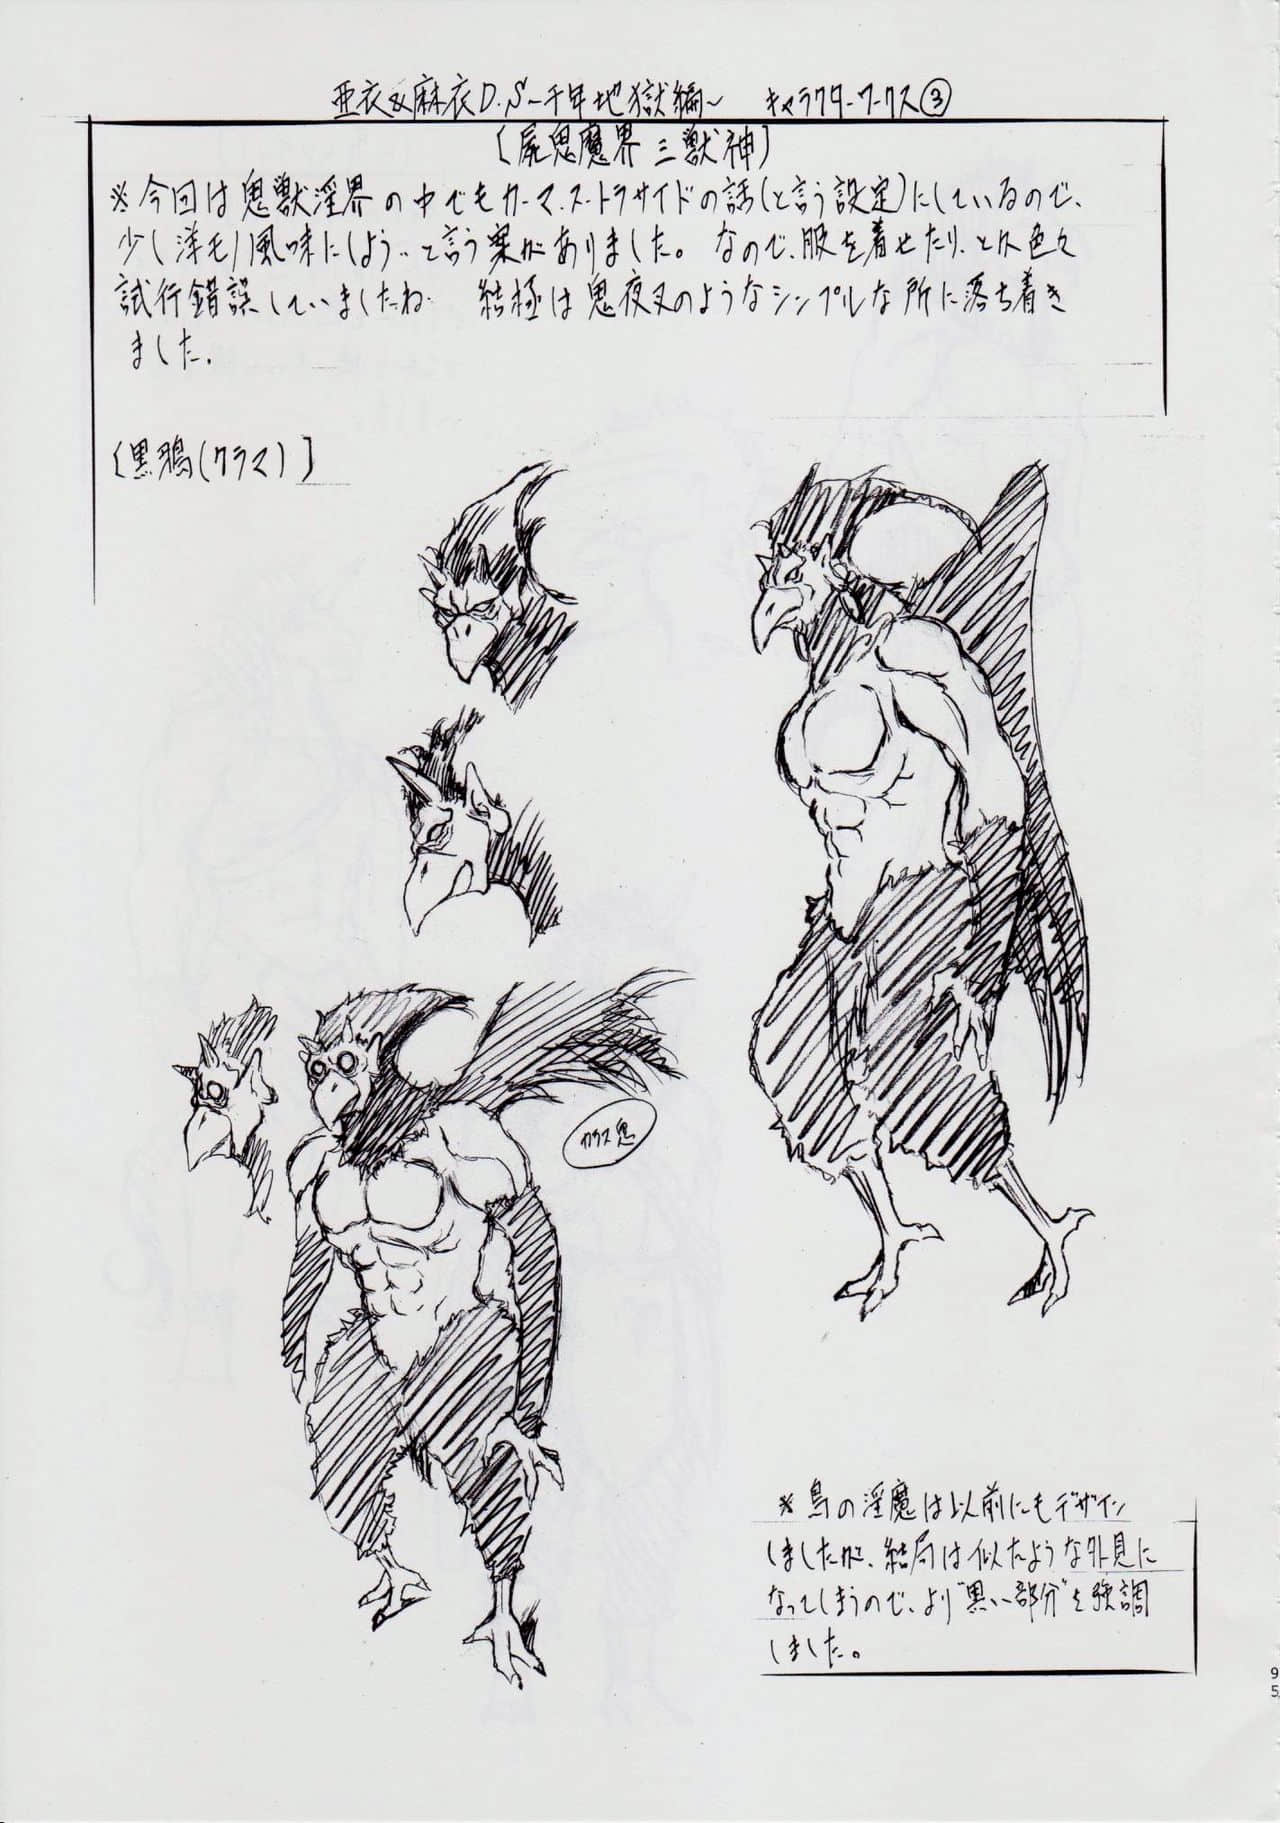 亜衣&麻衣D.S～千年地獄編～ キャラクターワークス③
〔屍鬼魔界三獣神〕
※今回は鬼獣淫界の中でもカーマ・スートラサイドの話(と言う設定)にしているので、
少し洋モノ風味にしよう‥と言う案がありました。なので、服を着せたり、とか色々
試行錯誤していましたね 結極は鬼夜叉のようなシンプルな所に落ち着き
ました.
〔黒鴉(クラマ)〕
カラス鬼
※鳥の淫魔は以前にもデザイン
しましたが、結局は似たような外見に
なってしまうので、より"黒い部分"を強調
しました。
95